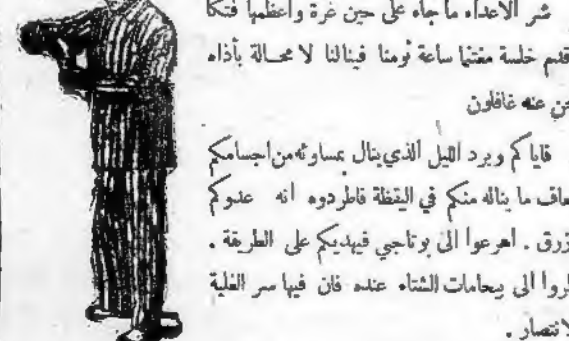 شر الاعداء ما جاء على حين غرة واعظمها فتكا
قدم خلسة مغتنما ساعة نومنا فينالنا لا محالة بأذاه
عنه غافلون
فاياكم وبرد الليل الذي ينال بمساوئه من اجسامكم
ما يناله منكم في اليقظة فاطردوه انه عدوكم
اهرعوا الى برتاجي فيهديكم على الطريقة .
الى بيجامات الشتاء عنده فان فيها سر الغلبة